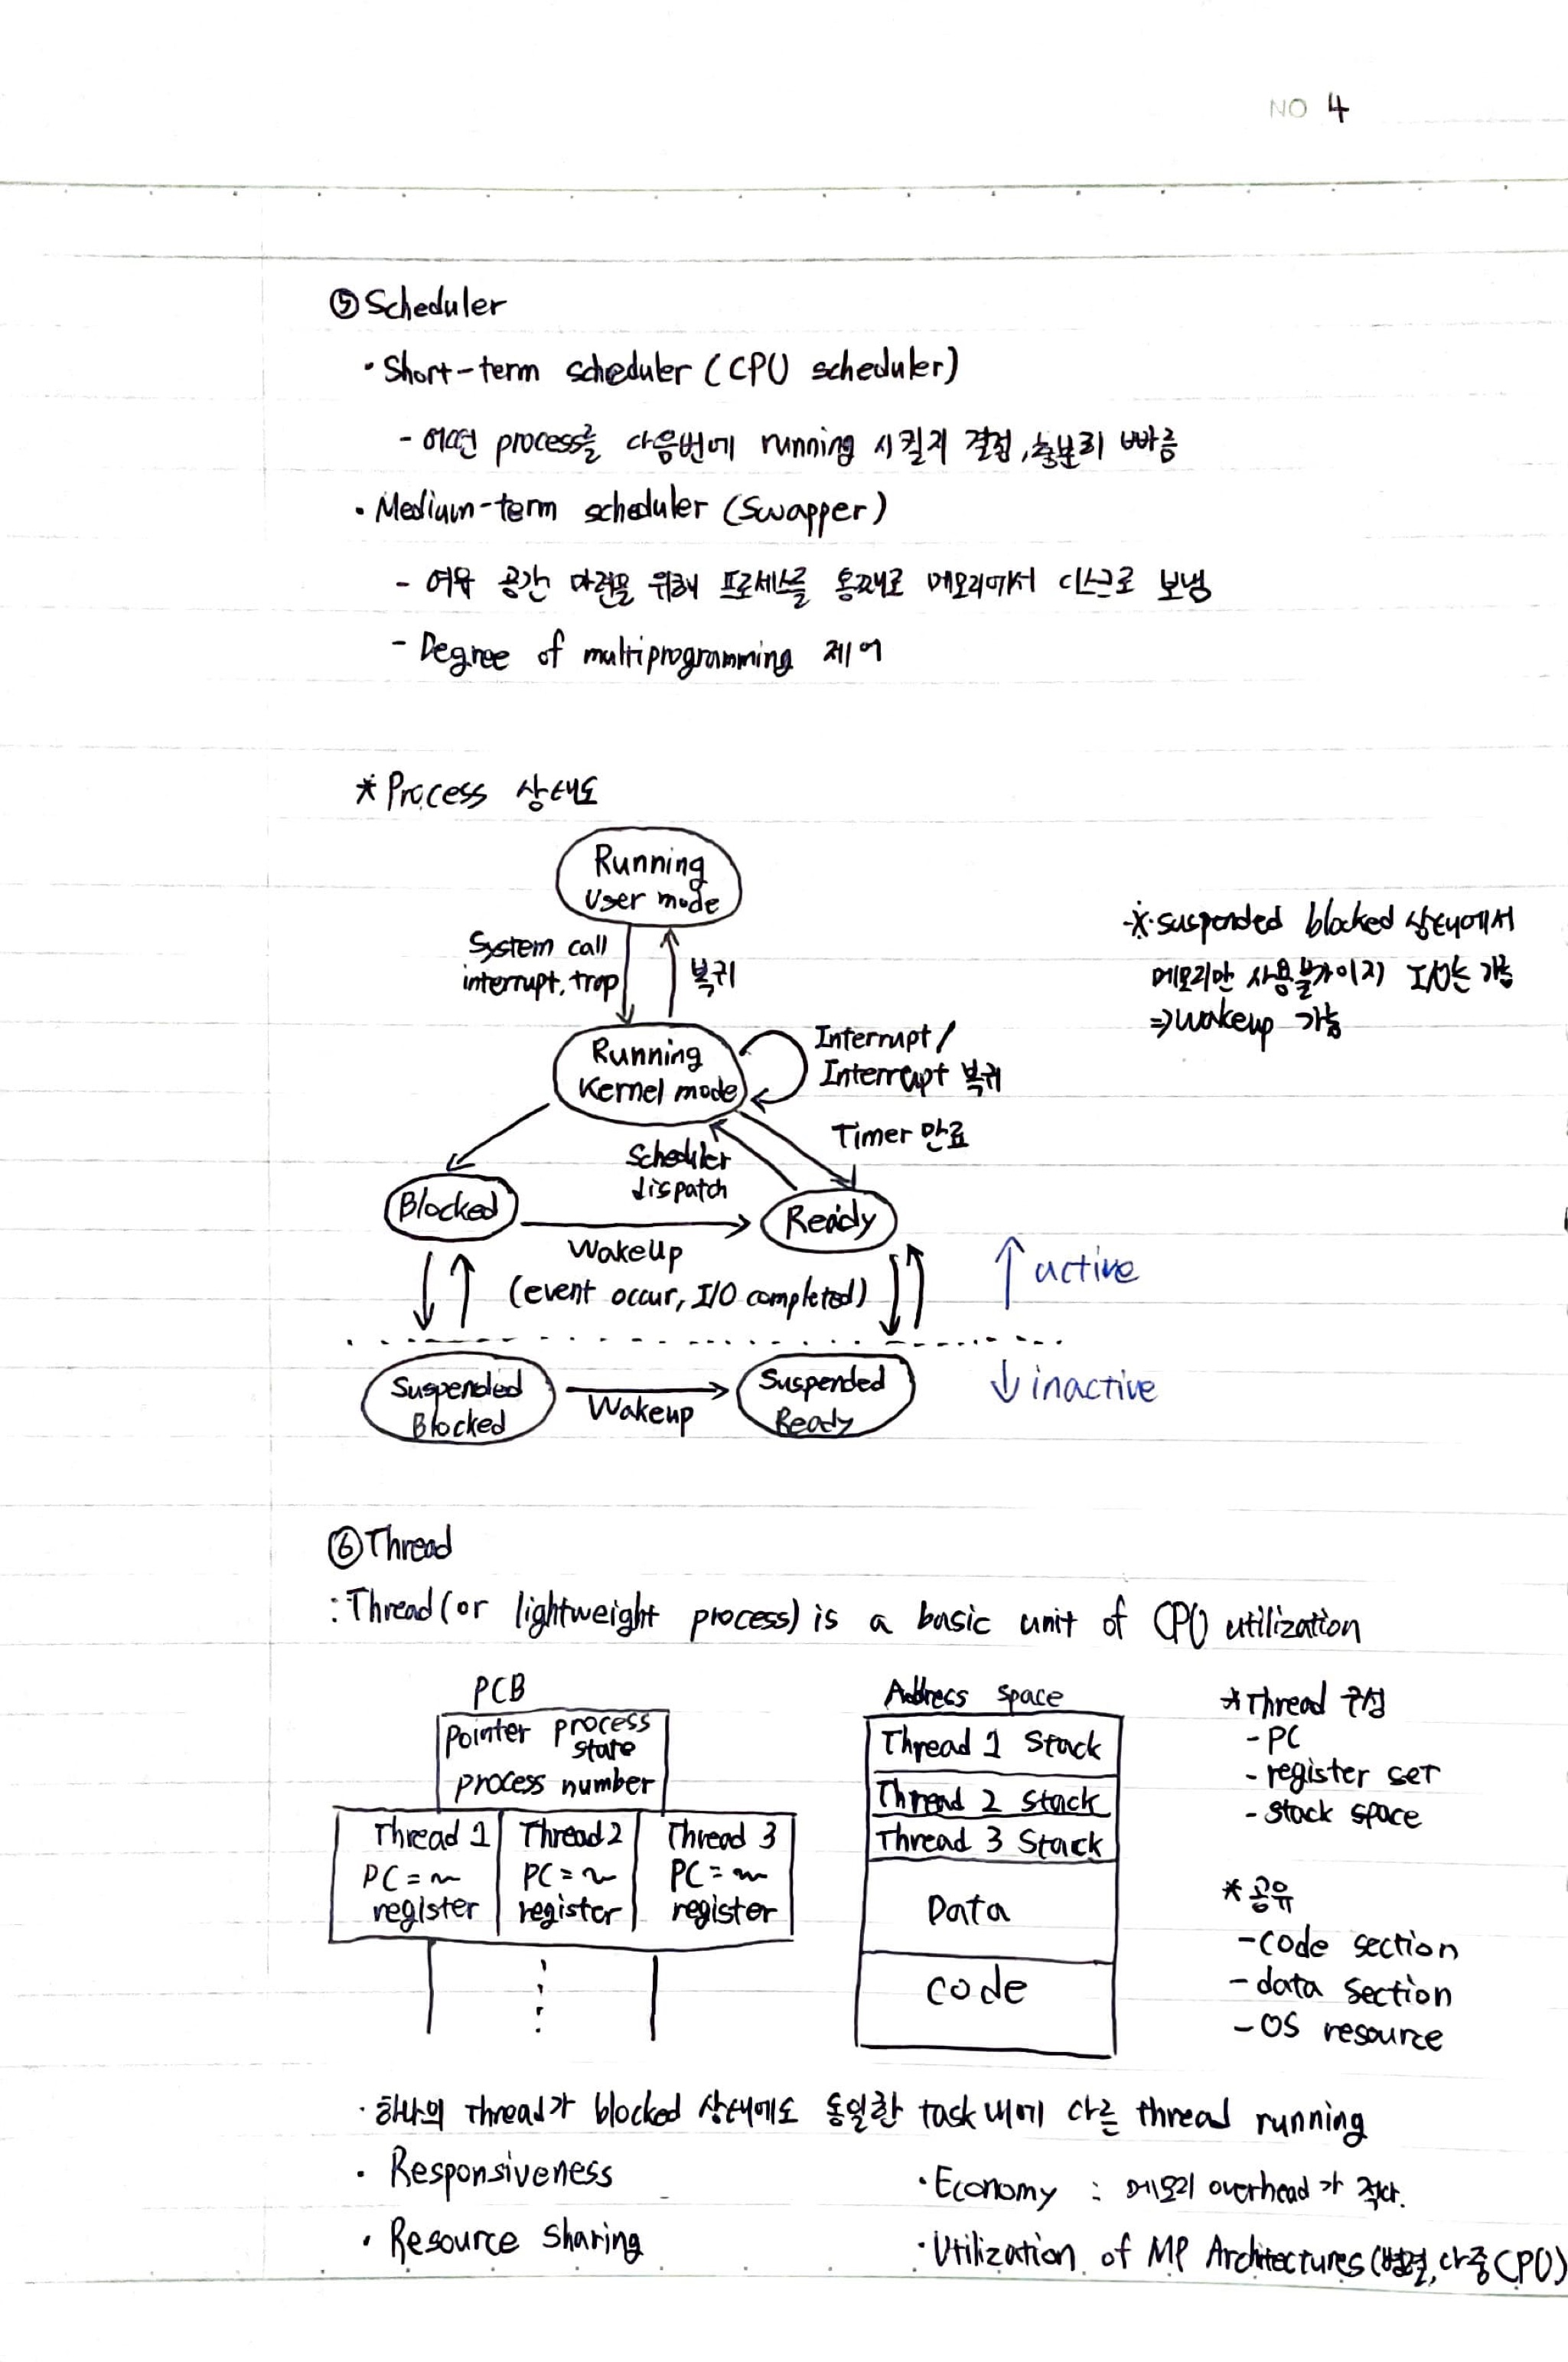 NO 4
⑤ Scheduler
· Short-term scheduler (CPU scheduler)
- 어떤 process를 다음번에 running 시킬지 결정, 충분히 빠름
· Medium-term scheduler (Swapper)
- 여유 공간 마련을 위해 프로세스를 통째로 메모리에서 디스크로 보냄
- Degree of multiprogramming 제어
* Process 상태도
Running
User mode
System call
interrupt, trap
복귀
※ suspended blocked 상태에서
메모리만 사용불가이지 I/O는 가능
⇒ wakeup 가능
Running
Kernel mode
Interrupt /
Interrupt 복귀
Timer 만료
Scheduler
dispatch
Blocked
Ready
WakeUp
(event occur, I/O completed)
↑ active
Suspended
Blocked
Wakeup
Suspended
Ready
↓ inactive
⑥ Thread
: Thread (or lightweight process) is a basic unit of CPU utilization
PCB
Pointer process
state
process number
Thread 1
PC = ~
register
Thread 2
PC = ~
register
Thread 3
PC = ~
register
Address space
Thread 1 Stack
Thread 2 Stack
Thread 3 Stack
Data
code
* Thread 구성
- PC
- register set
- stack space
* 공유
- code section
- data section
- OS resource
· 하나의 Thread가 blocked 상태에도 동일한 task 내에 다른 thread running
· Responsiveness
· Economy : 메모리 overhead가 적다.
· Resource sharing
· Utilization of MP Architectures (병렬, 다중 CPU)